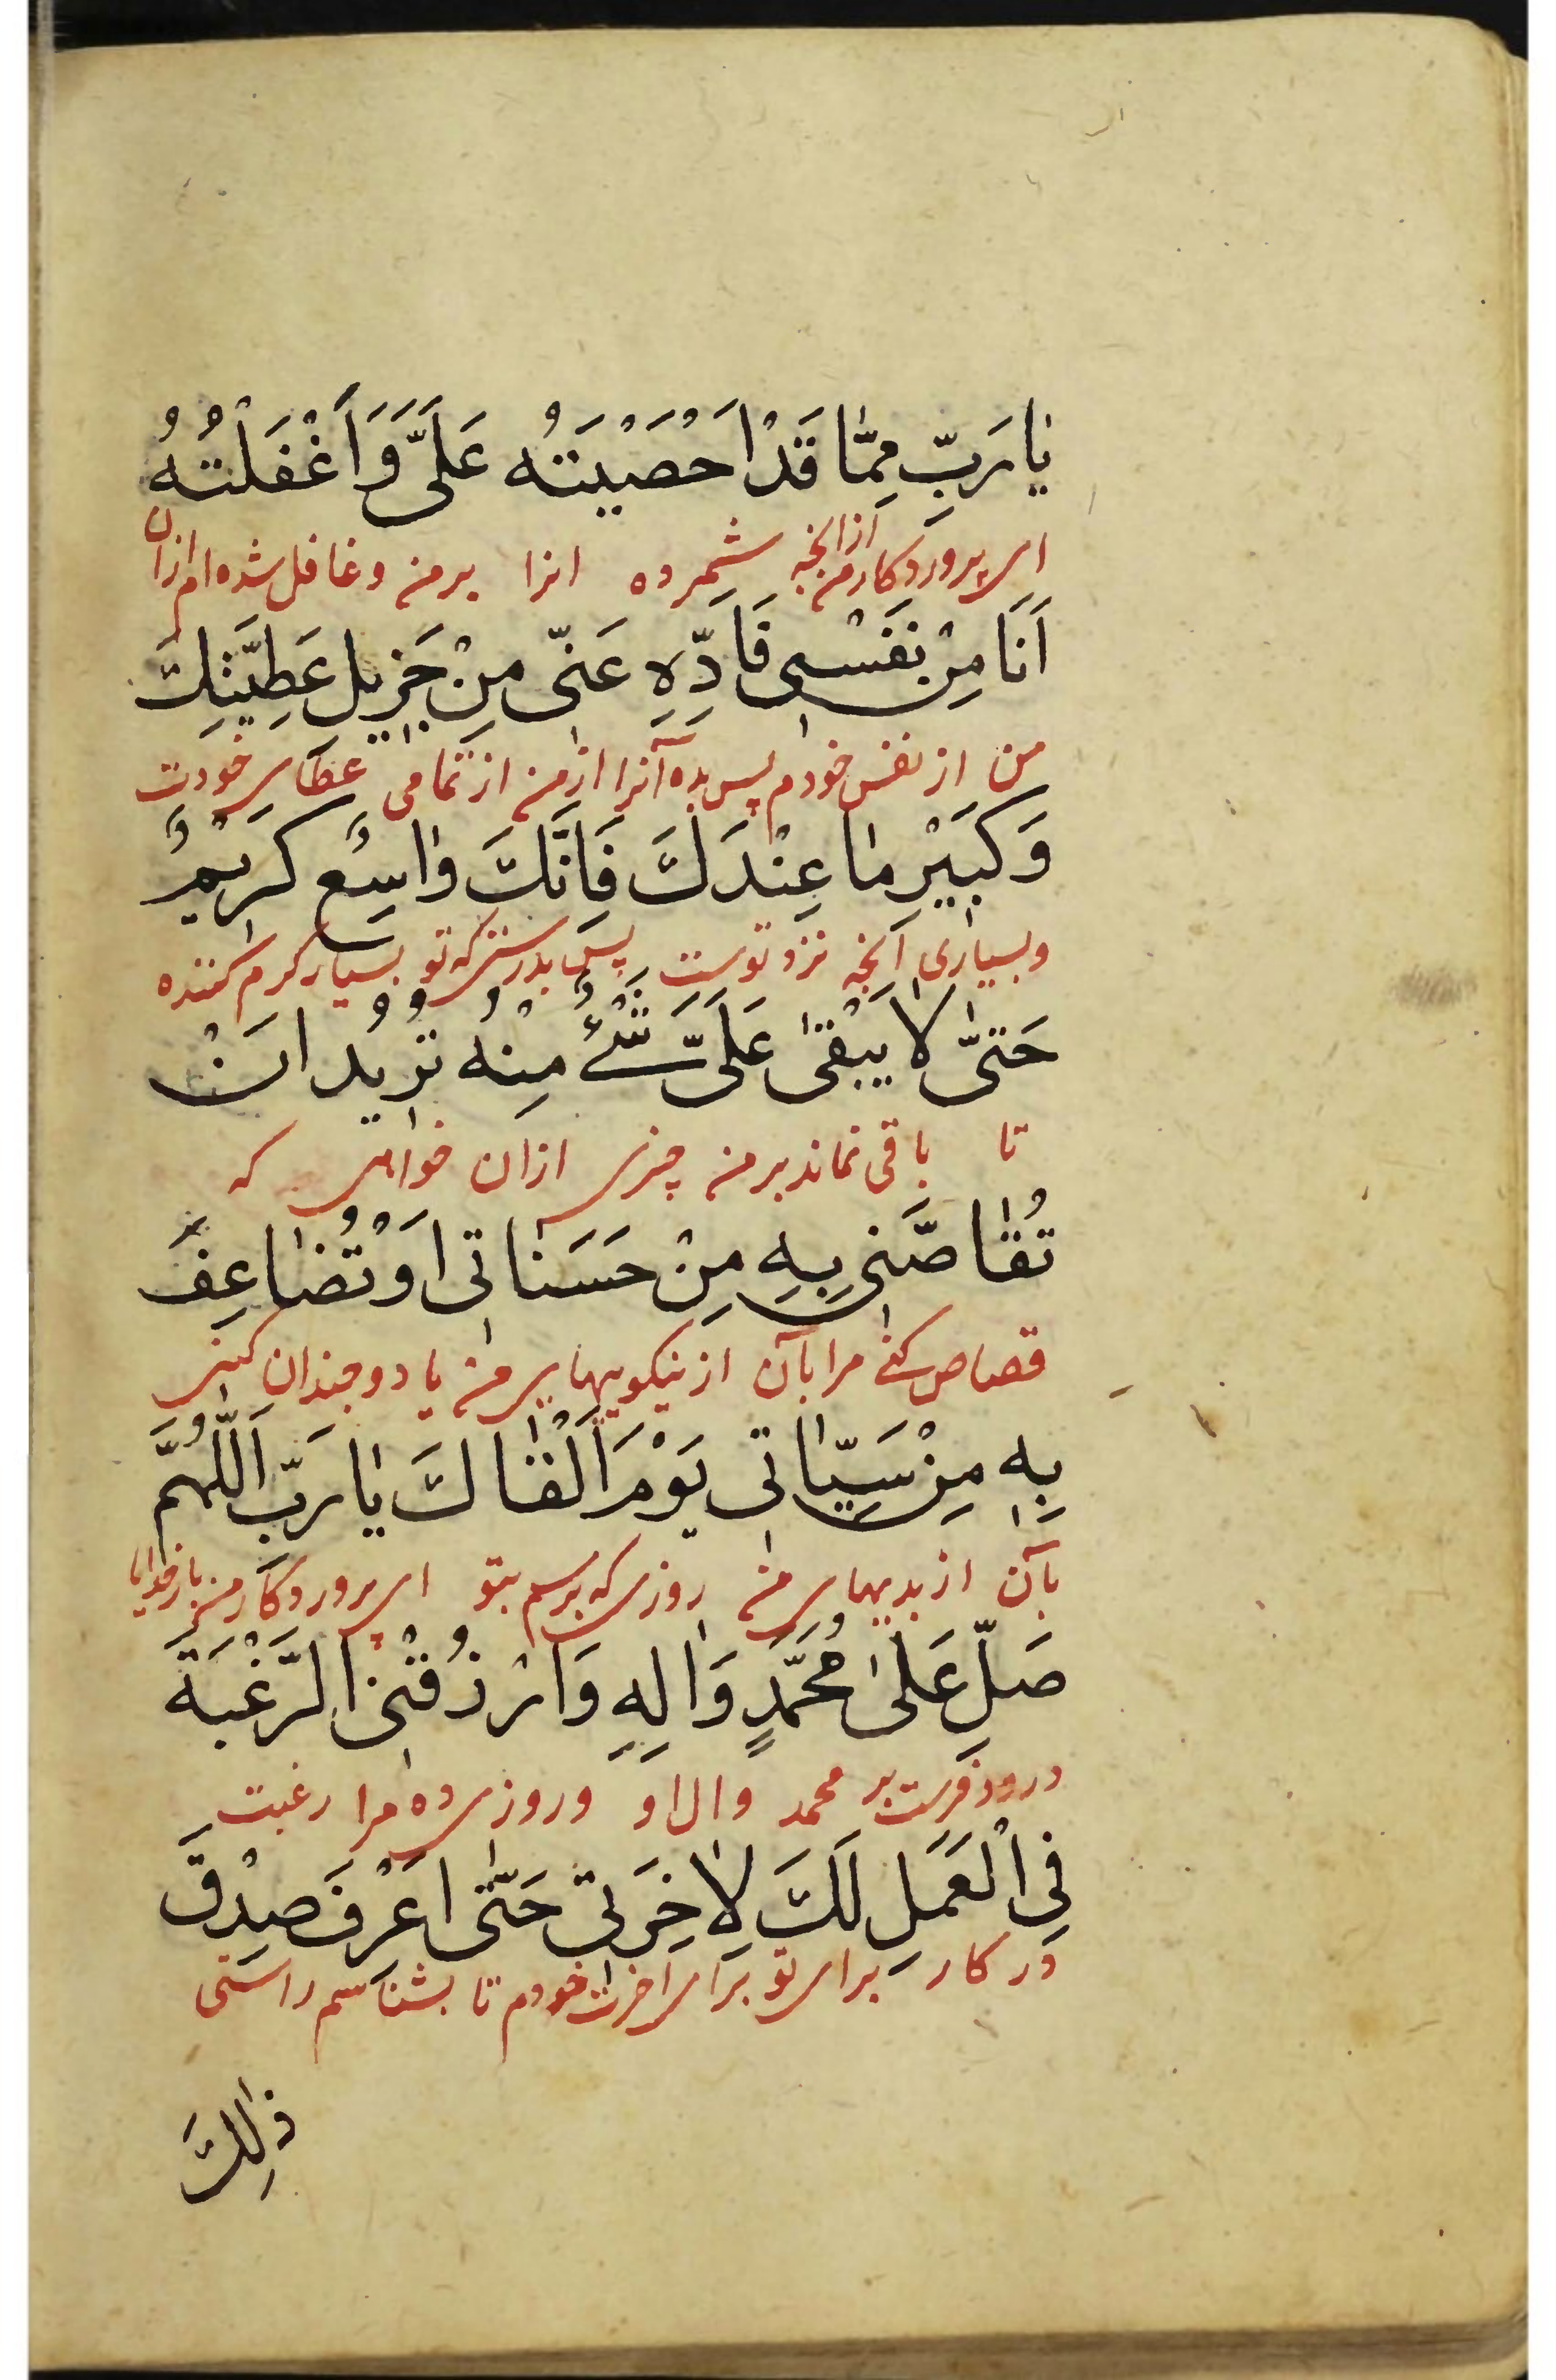 يٰا رَبِّ مِمّٰا قَدْ اَحْصَيْتَهُ عَلَىَّ وَ اَغْفَلْتُهُ
ای پروردکار من ازانچه شمرده انرا بر من وغافل شده ام ازان
اَنَا مِنْ نَفَسْی فَاَدِّهِ عَنّی مِنْ جَزیلِ عَطِیَّتِكَ
من از نفس خودم پس بده آنرا از من از تمامی عطای خودت
وَكَبَيْرِ مٰا عِنْدَكَ فَاِنَّكَ وٰاسِعٌ كَریْمٌ
وبسیاری آنچه نزد توست پس بدرستی که تو بسیار کرم کننده
حَتىّٰ لاٰ يَبْقىٰ عَلَىَّ شَْئٌ مِنْهُ تُریُد اَنْ
تا باقی نماند بر من چیزی ازان خواهی که
تُقٰاصَّنی بِهِ مِنْ حَسَنٰاتی اَوْ تُضٰاعِفَ
قصاص کنی مرا بآن از نیکوییهای من یا دوچندان کنی
بِهٖ مِنْ سَيِّاٰتی يَوْمَ اَلْقٰاكَ يٰا رَبِّ اَللّٰهُمَّ
بآن از بدیهای من روزی که برسم بتو ای پروردکار من بارخدایا
صَلِّ عَلىٰ مُحَمَّدٍ وَاٰلِهِ وَارْزُقْنی الرَّغْبَةَ
درود فرست بر محمد وال او وروزی ده مرا رغبت
فِی الْعَمَلِ لَكَ لِاٰخِرَتی حَتّٰى اَعْرِفَ صِدْقَ
در کار برای تو برای اخرت خودم تا بشناسم راستی
ذٰلِكَ